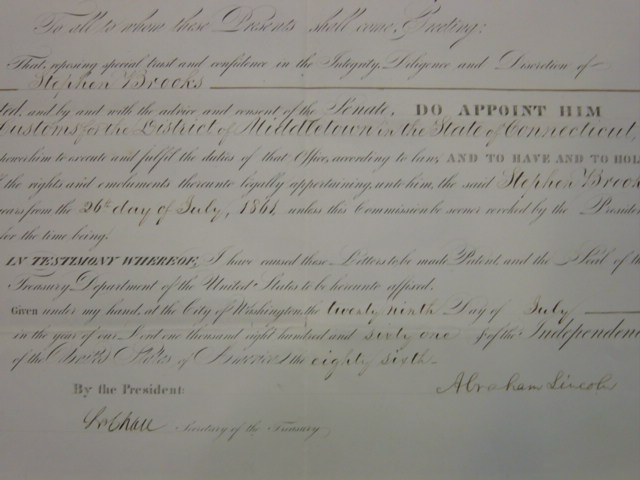 To all to whom these Presents shall come, Greeting:
That, reposing special trust and confidence in the Integrity, Diligence and Discretion of
Stephen Brooks
ted, and by and with the advice and consent of the Senate, DO APPOINT HIM
Customs for the District of Middletown in the State of Connecticut,
power him to execute and fulfil the duties of that Office, according to law, AND TO HAVE AND TO HOL
the rights and emoluments thereunto legally appertaining, unto him, the said Stephen Brook
ears from the 26th day of July, 1861, unless this Commission be sooner revoked by the Presiden
for the time being.
IN TESTIMONY WHEREOF, I have caused these Letters to be made Patent, and the Seal of th
Treasury Department of the United States to be hereunto affixed.
Given under my hand, at the City of Washington, the twenty ninth Day of July
in the year of our Lord one thousand eight hundred and sixty one & of the Independenc
of the United States of America the eighty sixth.
By the President:
Abraham Lincoln
S P Chase Secretary of the Treasury